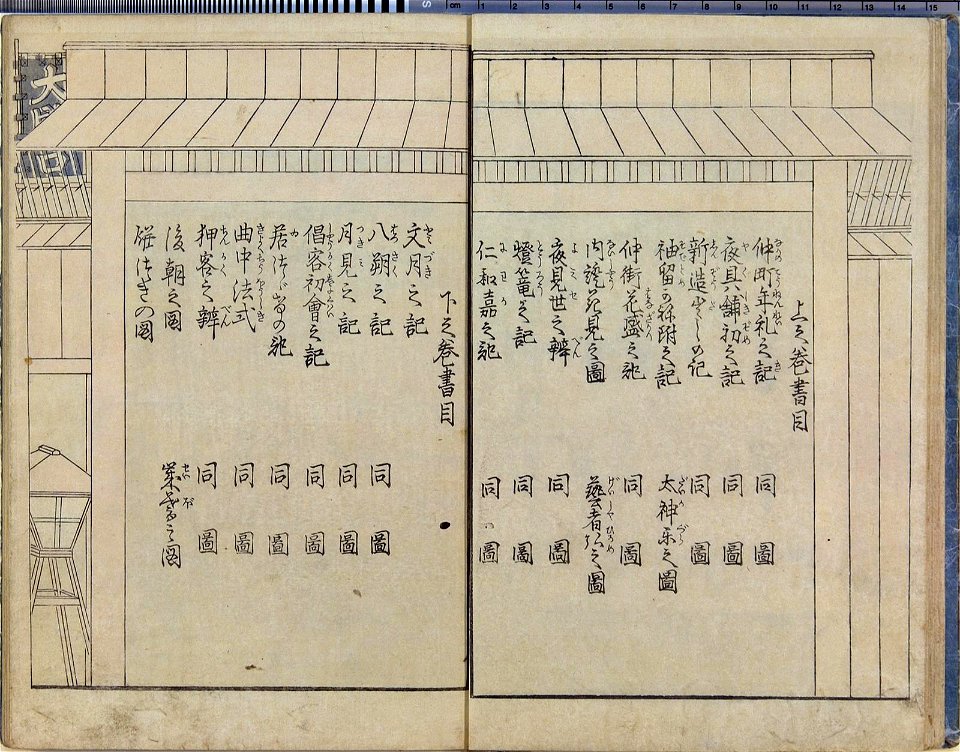 上之巻書目
仲町年礼之記 同圖
夜具舗初之記 同圖
新造出しの記 同圖
袖留 附之記 太神楽之圖
仲街花盛之記 同圖
内證花見之圖 藝者弘之圖
夜見世之辨 同圖
燈籠之記 同圖
仁和嘉之記 同圖
下之巻書目
文月之記
八朔之記 同圖
月見之記 同圖
倡客初會之記 同圖
居つゞけの記 同圖
曲中法式 同圖
狎客之辨 同圖
後朝之圖 之圖
餅つきの圖
大
cm 1 2 3 4 5 6 7 8 9 10 11 12 13 14 15